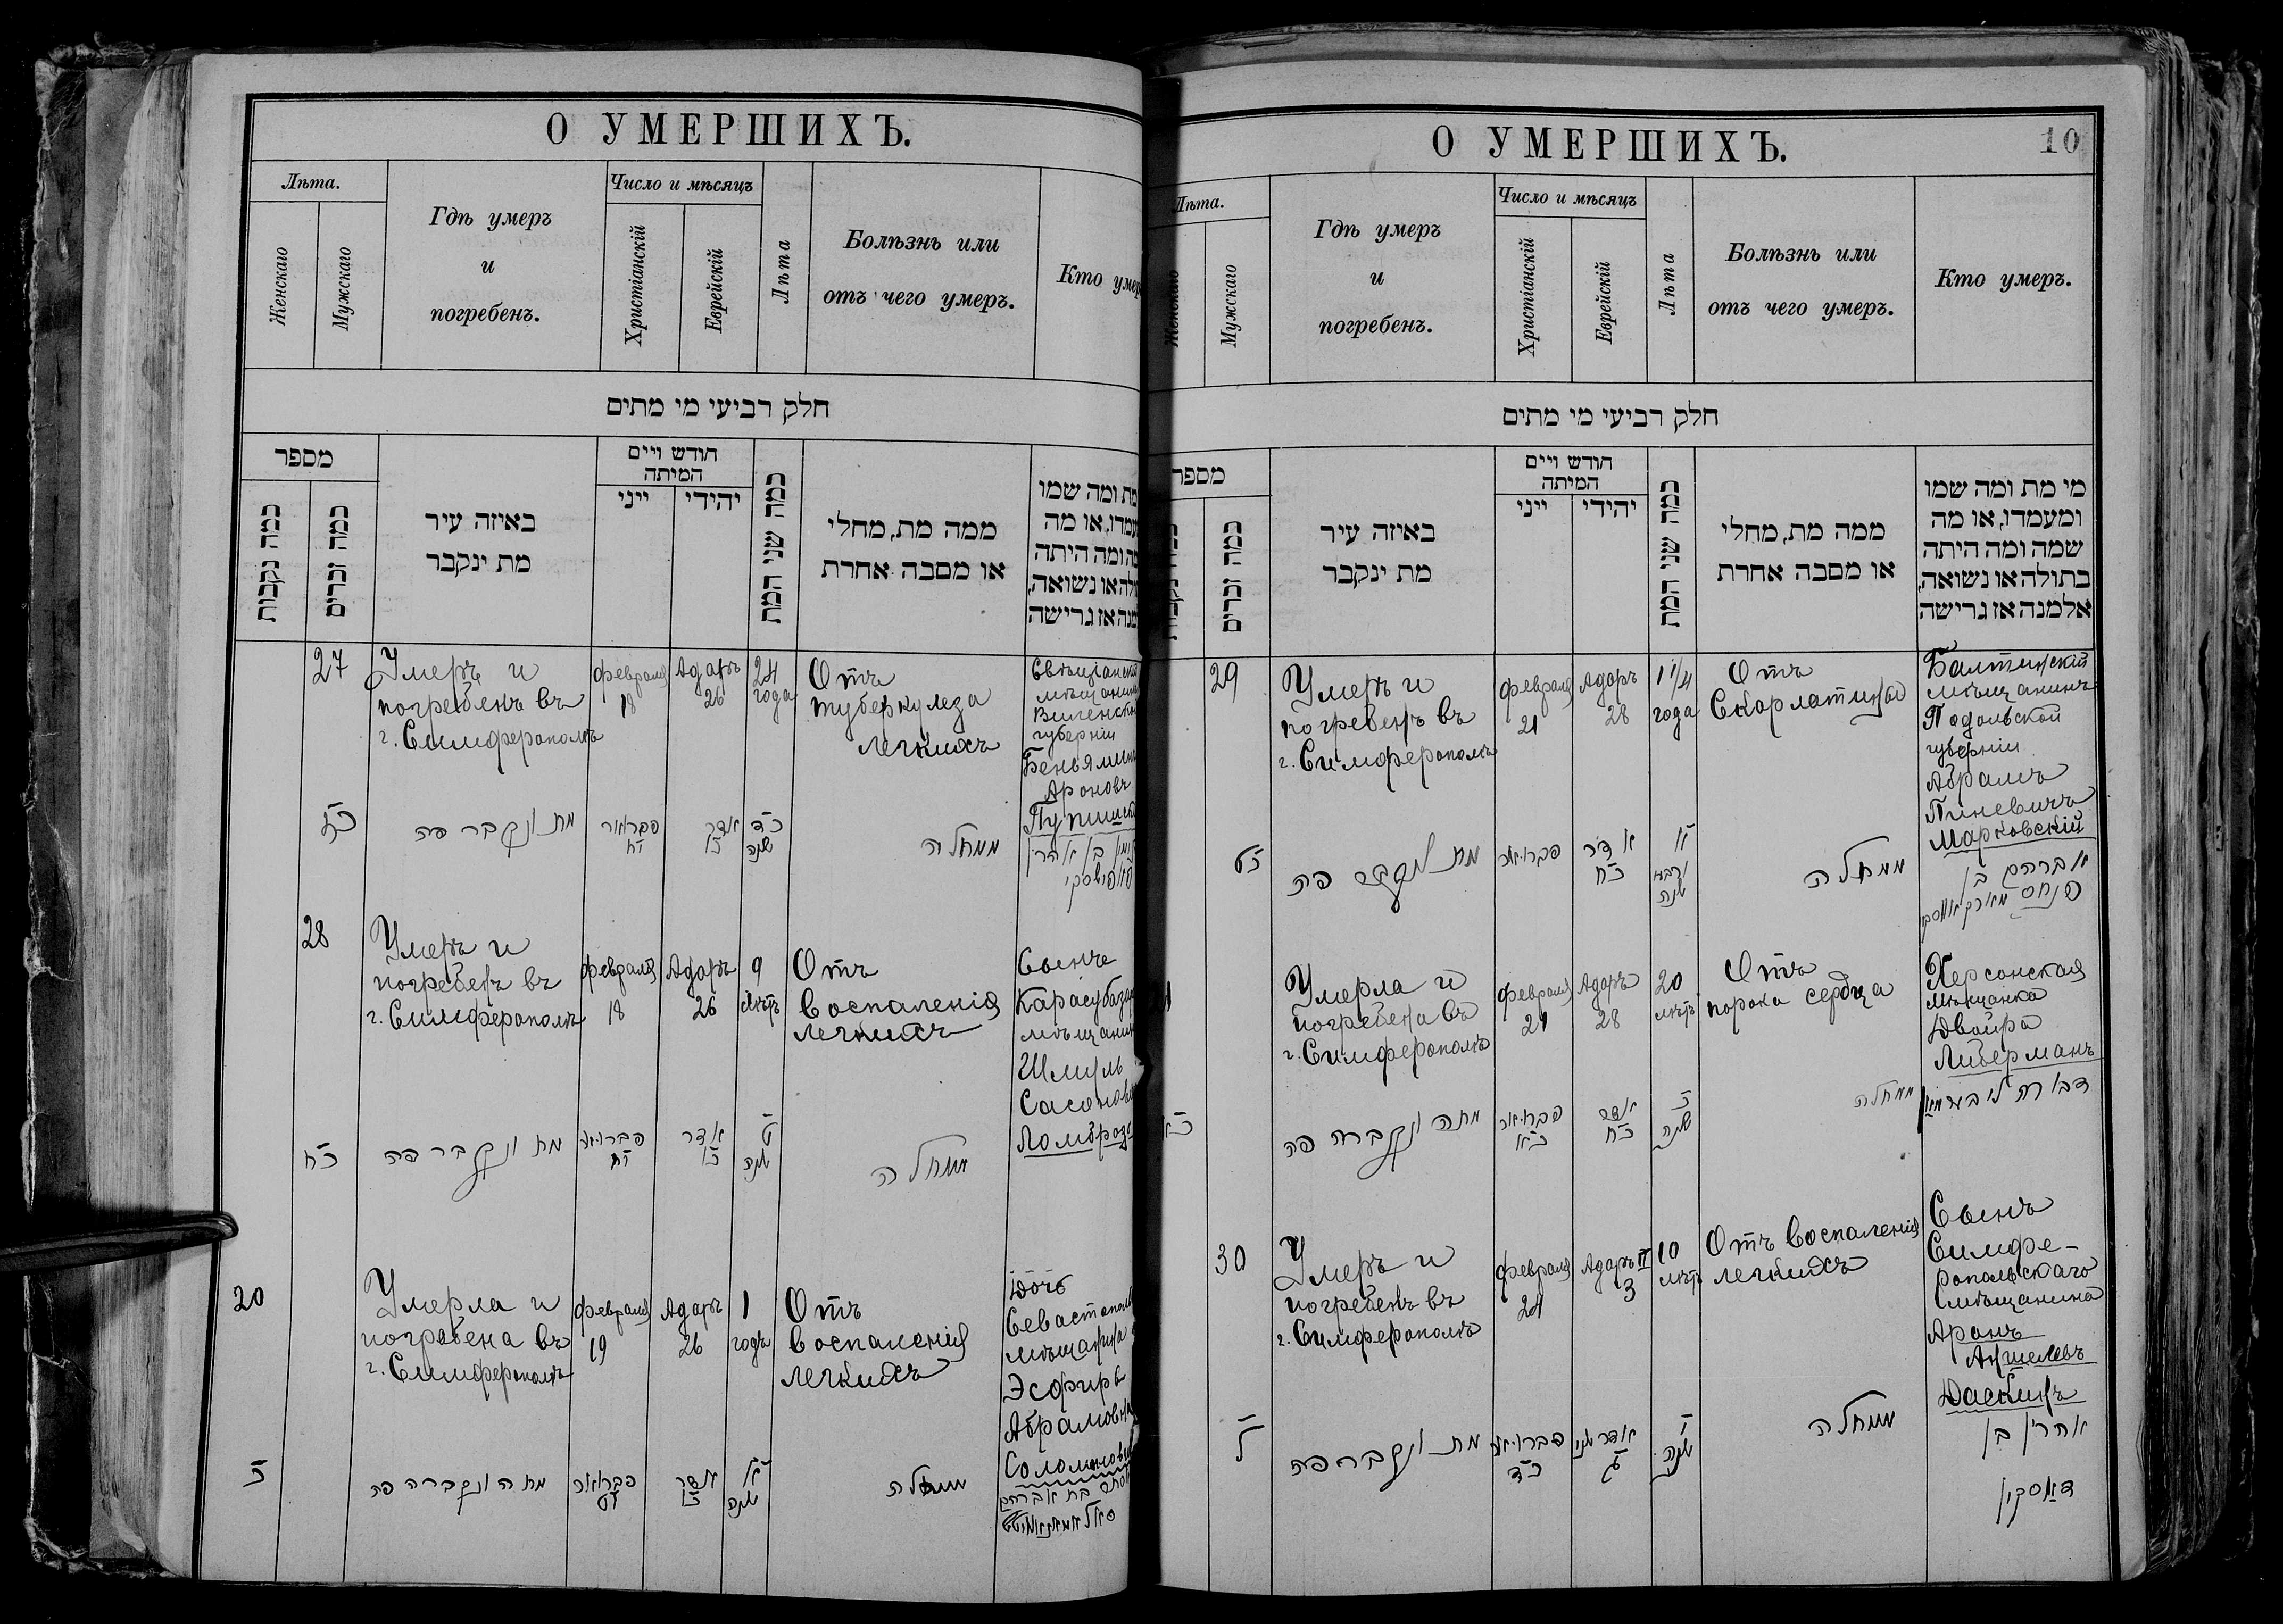 О УМЕРШИХЪ.
Лѣта.
Женскаго
Мужскаго
Гдѣ умеръ
и
погребенъ.
Число и мѣсяцъ
Христіанскій
Еврейскій
Лѣта
Болѣзнь или
отъ чего умеръ.
Кто умер
חלק רביעי מי מתים
מספר
כמה נקבות
כמה זכרים
באיזה עיר
מת ינקבר
חודש ויים
המיתה
ייני
יהודי
כמה שני המת
ממה מת, מחלי
או מסבה אחרת
מת ומה שמו
עמדו, או מה
מה ומה היתה
ולה או נשואה,
מנה אז גרישה
27
Умеръ и
погребенъ въ
г. Симферополѣ
февраля
18
Адаръ
26
24
года
Отъ
туберкулеза
легкихъ
Свѣнцянскій
мѣщанинъ
Виленской
губерніи
Беньяминъ
Ароновъ
כ״ז
מת ונקבר פה
פברואר
י״ח
אדר
כ״ו
כ״ד
שנה
ממחלה
28
Умеръ и
погребенъ въ
г. Симферополѣ
февраля
18
Адаръ
26
9
лѣтъ
Отъ
воспаленія
легкихъ
Сынъ
Карасубаза
мѣщанин
Шмуль
Сасонов
Ломброзо
כ״ח
מת ונקבר פה
פברואר
י״ח
אדר
כ״ו
ט
שנה
ממחלה
20
Умерла и
погребена въ
г. Симферополѣ
февраля
19
Адаръ
26
1
годъ
Отъ
воспаленія
легкихъ
Дочь
Севастопол
мѣщанина
Эсфирь
Абрамовна
Соломонов
כ
מתה ונקברה פה
פברואר
י״ט
אדר
כ״ו
א
שנה
ממחלה
אסתר בת אברהם
О УМЕРШИХЪ.
10
Лѣта.
Женскаго
Мужскаго
Гдѣ умеръ
и
погребенъ.
Число и мѣсяцъ
Христіанскій
Еврейскій
Лѣта
Болѣзнь или
отъ чего умеръ.
Кто умеръ.
חלק רביעי מי מתים
מספר
כמה זכרים
באיזה עיר
מת ינקבר
חודש ויים
המיתה
ייני
יהודי
כמה שני המת
ממה מת, מחלי
או מסבה אחרת
מי מת ומה שמו
ומעמדו, או מה
שמה ומה היתה
בתולה או נשואה,
אלמנה אז גרישה
29
Умеръ и
погребенъ въ
г. Симферополѣ
февраля
21
Адаръ
28
1 1/4
года
Отъ
Скарлатины
Балтинскій
мѣщанинъ
Подольской
губерніи
Абрамъ
Пиневичъ
Марковскій
כ״ט
מת ונקבר פה
פברואר
אדר
כ״ח
א
ורבע
שנה
ממחלה
אברהם בן
פנחס
Умерла и
погребена въ
г. Симферополѣ
февраля
21
Адаръ
28
20
лѣтъ
Отъ
порока сердца
Херсонская
мѣщанка
Двойра
Либерманъ
מתה ונקברה פה
פברואר
כ״א
אדר
כ״ח
כ
שנה
ממחלה
דבורה ליבערמאן
30
Умеръ и
погребенъ въ
г. Симферополѣ
февраля
24
Адаръ II
3
10
лѣтъ
Отъ воспаленія
легкихъ
Сынъ
Симфе-
ропольскаго
мѣщанина
Аронъ
Аншелевъ
Даскинъ
ל
מת ונקבר פה
פברואר
כ״ד
אדר שני
ג
י
שנה
ממחלה
אהרן בן
דאסקין